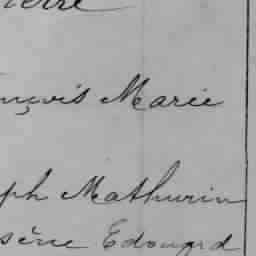 ierre
nçois Marie
ph Mathurin
sène Edouard